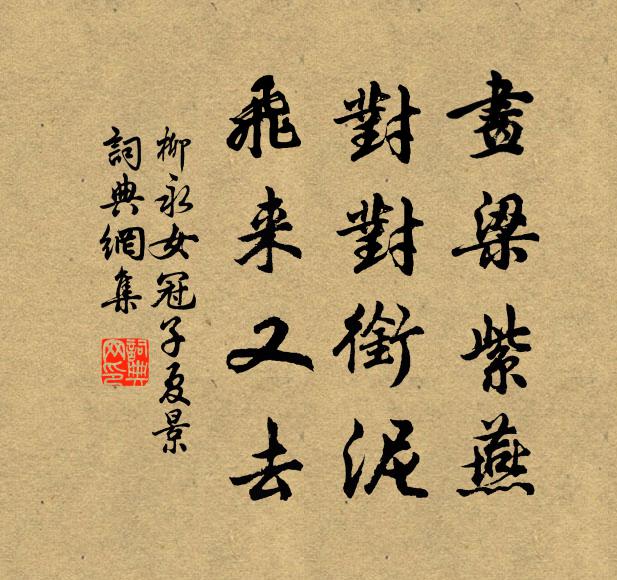 畫梁紫燕
對對銜泥
飛来又去
柳永女冠子夏景
詞典網集
詞典網印